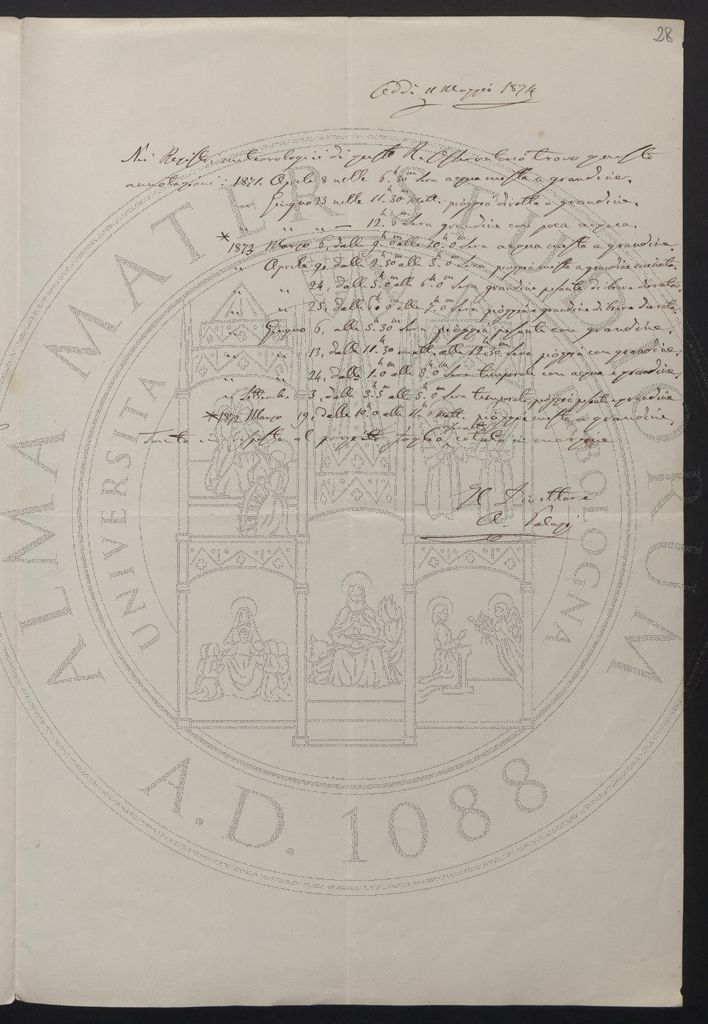 28
Addì 11 Maggio 1874
Nei Registri meteorologici di questo R. Osservatorio trovo queste
annotazioni: 1871. Aprile 8 nelle 6.h 30m sera acqua mista a grandine.
" Giugno 23 nelle 11.h 30m matt. pioggia dirotta e grandine.
" " " — 12.h 0m sera grandine con poca acqua.
* 1873 Marzo 6, dalle 9.h 0 alle 10.h 0m sera acqua mista a grandine.
" Aprile 9, dalle 3.h 50m alle 5.h 0m sera pioggia mista a grandine
" " 24, dalle 5.h 0 alle 6.h 0m sera grandine pesante di breve durata.
" " 25, dalle 6.h 0 alle 7.h 0m sera pioggia e grandine di breve durata.
" Giugno 6, alle 5.h 30m sera pioggia pesante con grandine.
" " 13, dalle 11.h 30m matt. alle 12.h 30m sera pioggia con grandine.
" " 24, dalle 1.h 0 alle 8.h 0m sera temporale con acqua e grandine.
" Settembre 3, dalle 3.h 5m alle 5.h 0m sera temporale, pioggia pesante e grandine
* 1872 Marzo 19, dalle 10.h 0 alle 11.h 0m matt. pioggia mista a grandine.
Tanto in risposta al foglio, in margine
Il Direttore
A. Palagi
ALMA MATER STUDIORUM
UNIVERSITA DI BOLOGNA
A.D. 1088